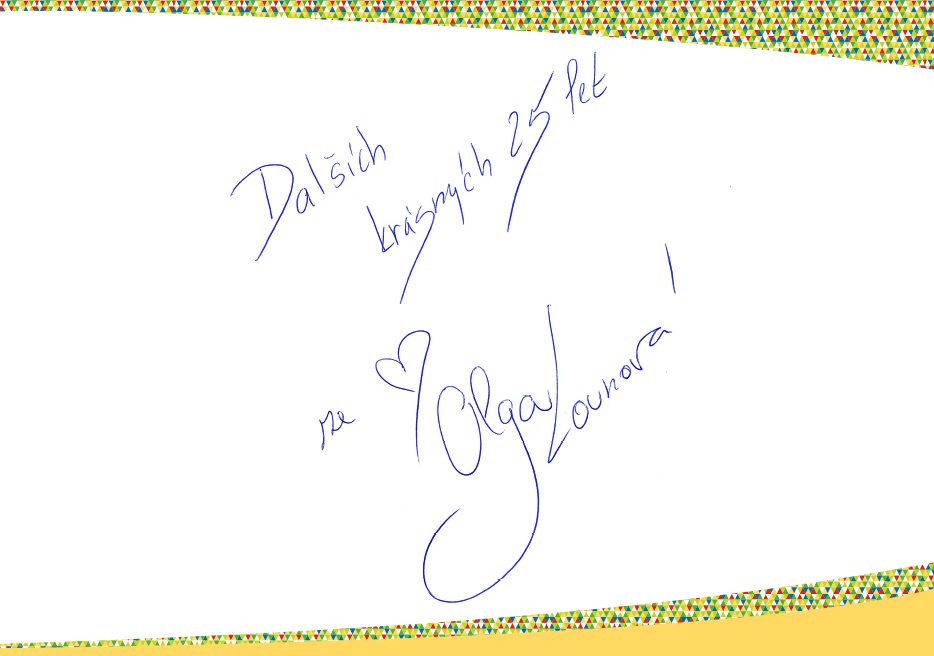 Dalších
krásných 25 let
ze ♡ Olga Lounová